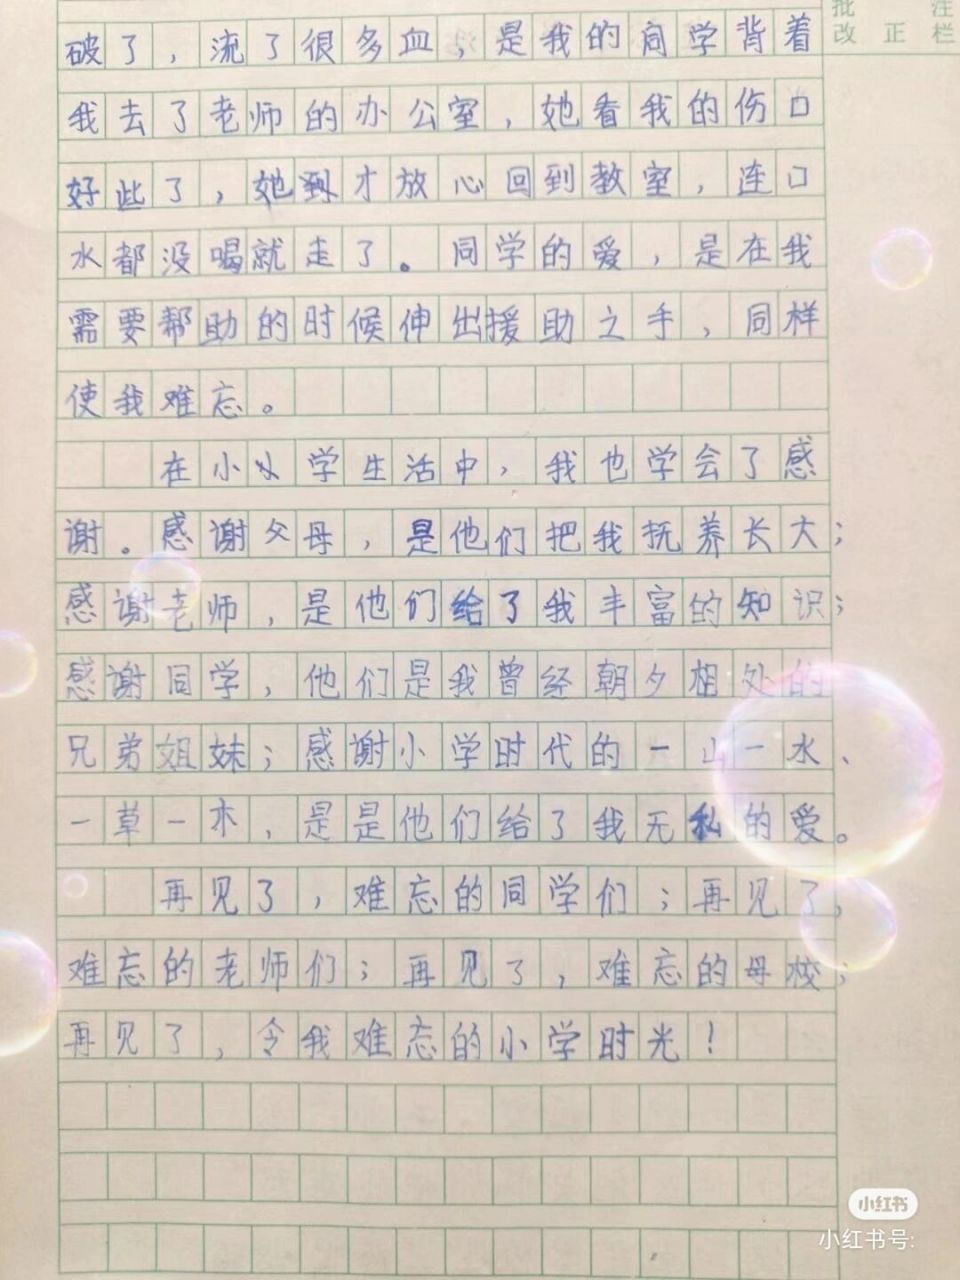 批 注
改 正 栏
破了，流了很多血，是我的同学背着
我去了老师的办公室，她看我的伤口
好些了，她到才放心回到教室，连口
水都没喝就走了。同学的爱，是在我
需要帮助的时候伸出援助之手，同样
使我难忘。
在小学生活中，我也学会了感
谢。感谢父母，是他们把我抚养长大；
感谢老师，是他们给了我丰富的知识；
感谢同学，他们是我曾经朝夕相处的
兄弟姐妹；感谢小学时代的一山一水、
一草一木，是是他们给了我无私的爱。
再见了，难忘的同学们；再见了，
难忘的老师们；再见了，难忘的母校；
再见了，令我难忘的小学时光！
小红书
小红书号: